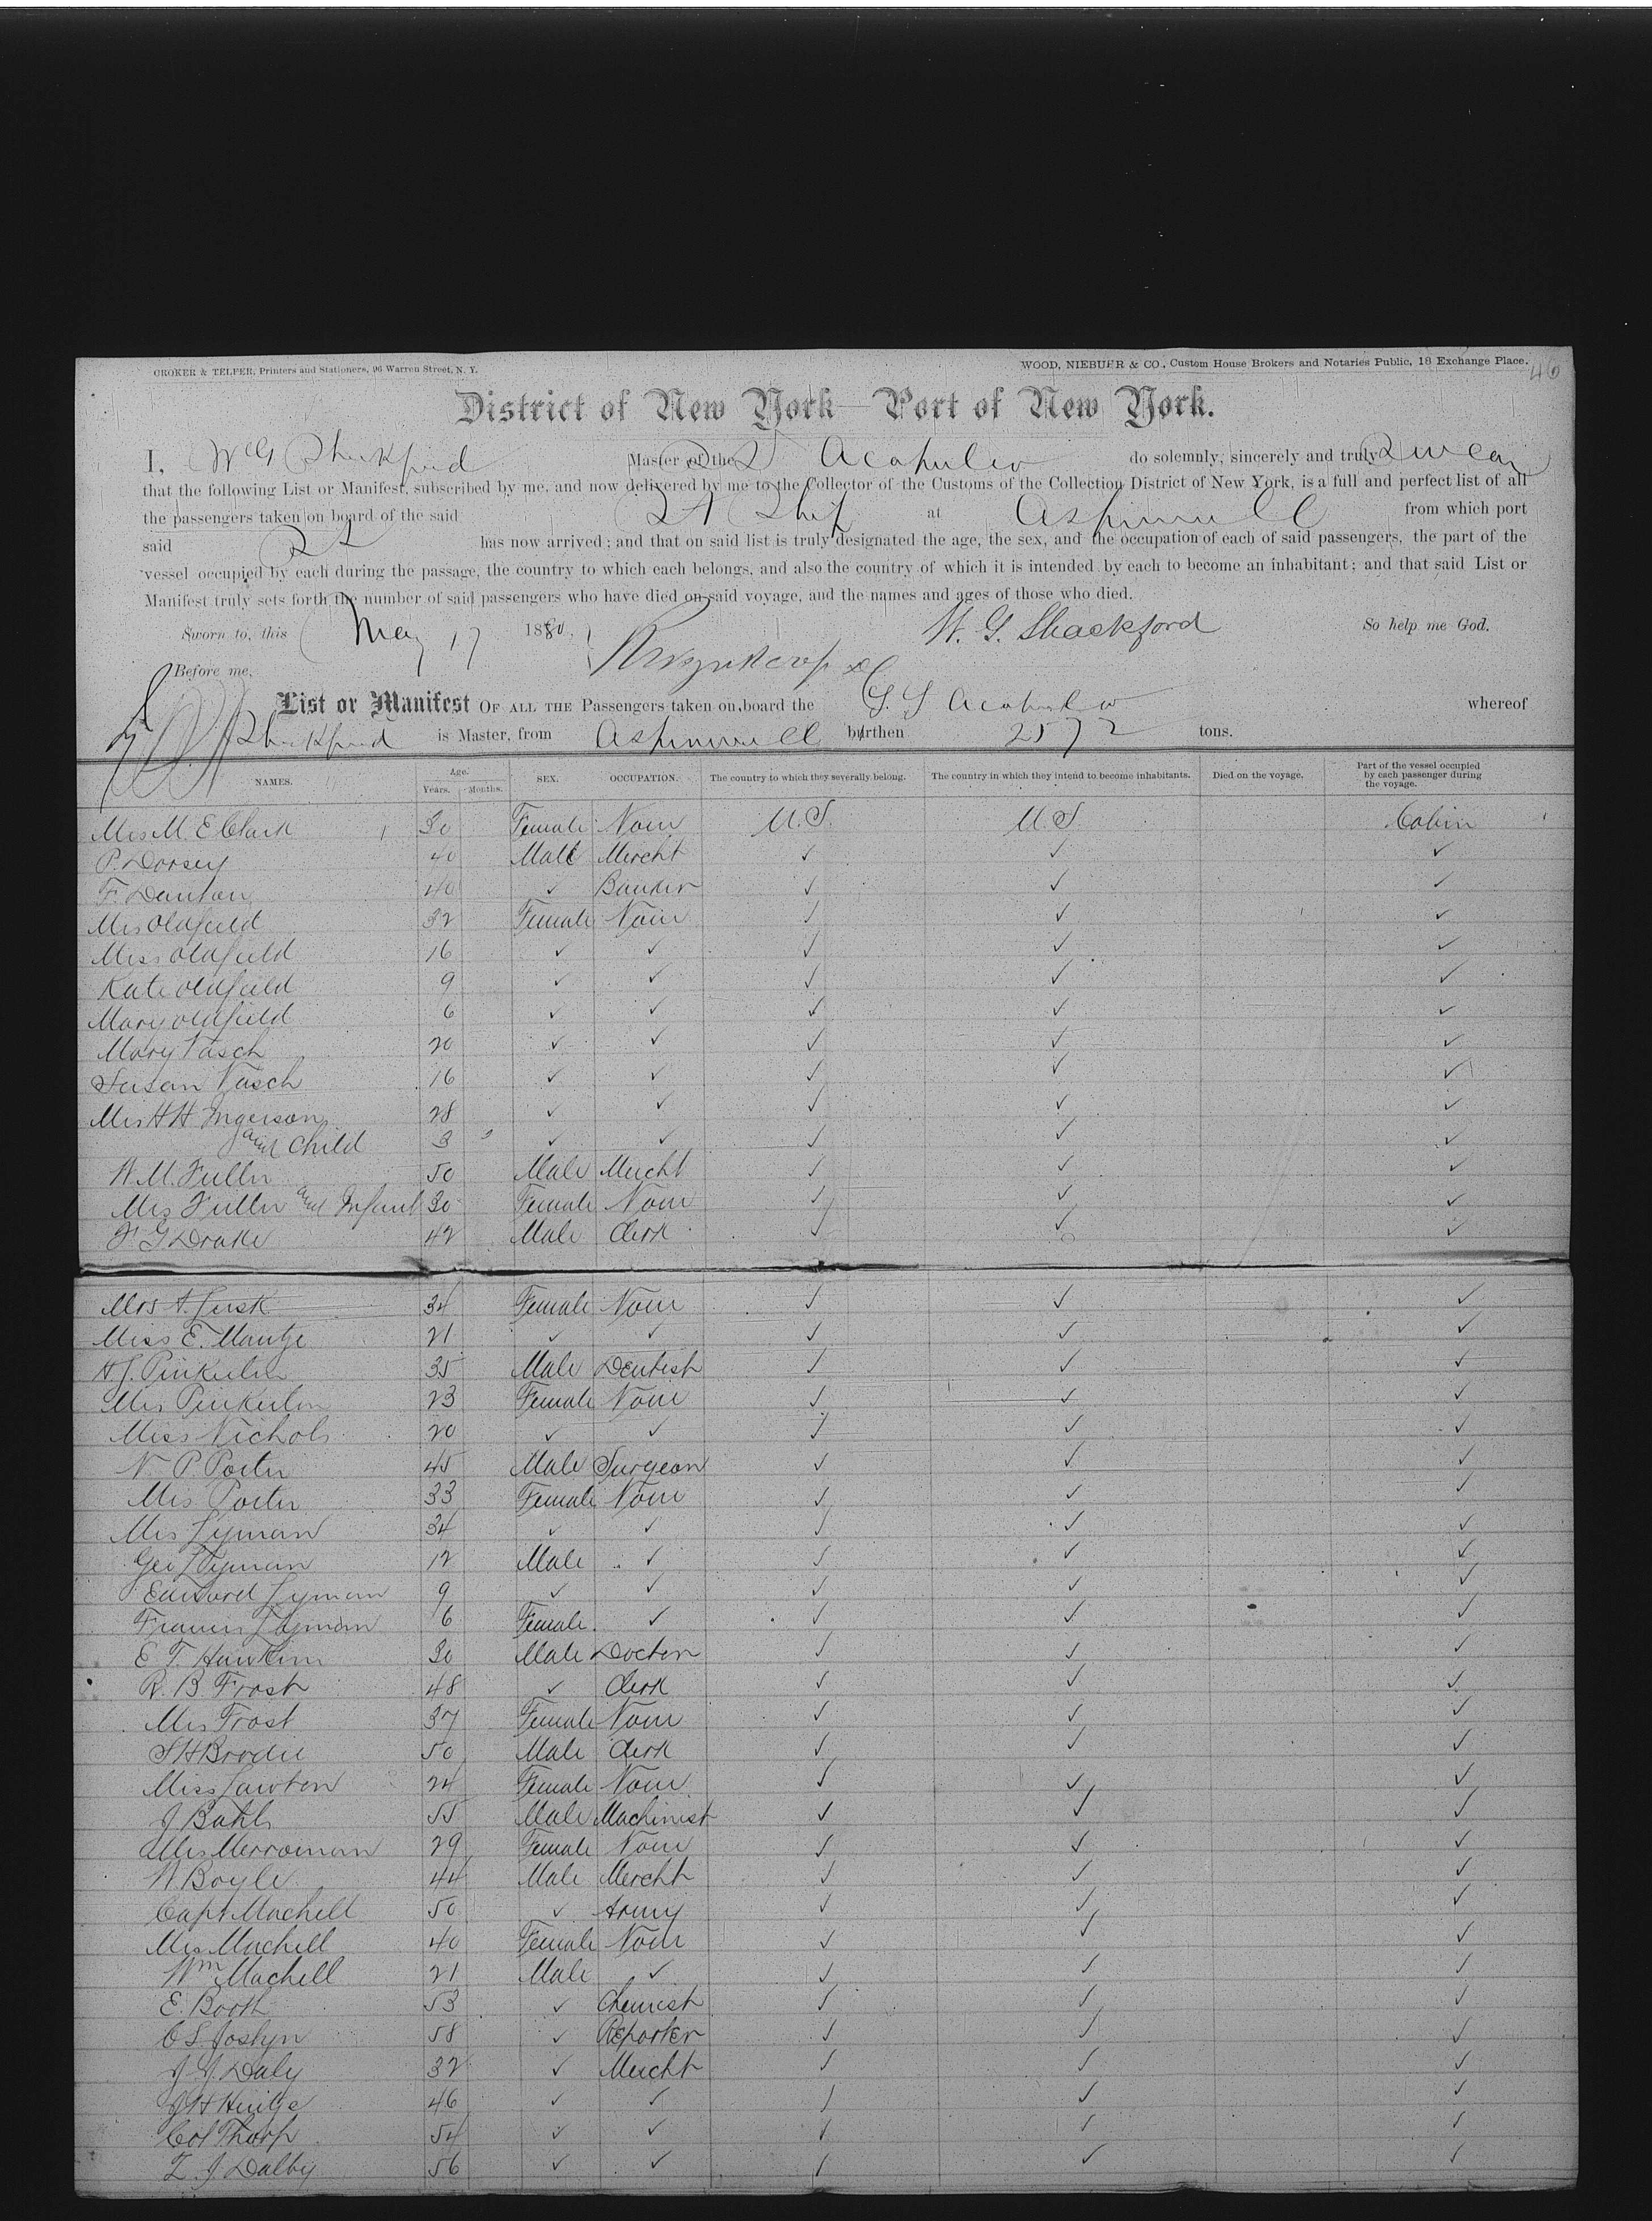 CROKER & TELFER, Printers and Stationers, 96 Warren Street, N. Y.
WOOD, NIEBUHR & CO., Custom House Brokers and Notaries Public, 18 Exchange Place.
District of New York—Port of New York.
I, W G Shackford Master of the SS Acapulco do solemnly, sincerely and truly Swear
that the following List or Manifest, subscribed by me, and now delivered by me to the Collector of the Customs of the Collection District of New York, is a full and perfect list of all
the passengers taken on board of the said St Ship at Aspinwall from which port
said SS has now arrived; and that on said list is truly designated the age, the sex, and the occupation of each of said passengers, the part of the
vessel occupied by each during the passage, the country to which each belongs, and also the country of which it is intended by each to become an inhabitant; and that said List or
Manifest truly sets forth the number of said passengers who have died on said voyage, and the names and ages of those who died.
Sworn to, this May 17 1880. W. G. Shackford So help me God.
Before me,
List or Manifest OF ALL THE Passengers taken on board the S. S Acapulco whereof
Shackford is Master, from Aspinwall burthen 2572 tons.
NAMES. Age. Years. Months. SEX. OCCUPATION. The country to which they severally belong. The country in which they intend to become inhabitants. Died on the voyage. Part of the vessel occupied by each passenger during the voyage.
Mrs M. E Clark 30 Female None U.S. U.S Cabin
P. Dorsey 40 Male Mercht ✓ ✓ ✓
F. Danton 40 ✓ Banker ✓ ✓ ✓
Mrs Oldfield 32 Female None ✓ ✓ ✓
Miss Oldfield 16 ✓ ✓ ✓ ✓ ✓
Kate Oldfield 9 ✓ ✓ ✓ ✓ ✓
Mary Oldfield 6 ✓ ✓ ✓ ✓ ✓
Mary Vasch 20 ✓ ✓ ✓ ✓ ✓
Susan Vasch 16 ✓ ✓ ✓ ✓ ✓
Mrs H H Ingerson 28 ✓ ✓ ✓ ✓ ✓
and Child 3 ✓ ✓ ✓ ✓ ✓
W. M. Fuller 50 Male Mercht ✓ ✓ ✓
Mrs Fuller and Infant 30 Female None ✓ ✓ ✓
F. G Drake 42 Male Clerk ✓ ✓ ✓
Mrs A. Lusk 34 Female None ✓ ✓ ✓
Miss E. Mantze 21 ✓ ✓ ✓ ✓ ✓
H. J. Pinkerton 35 Male Dentist ✓ ✓ ✓
Mrs Pinkerton 23 Female None ✓ ✓ ✓
Miss Nichols 20 ✓ ✓ ✓ ✓ ✓
N. P. Porter 45 Male Surgeon ✓ ✓ ✓
Mrs Porter 33 Female None ✓ ✓ ✓
Mrs Lyman 34 ✓ ✓ ✓ ✓ ✓
Geo Lyman 12 Male ✓ ✓ ✓ ✓
Edward Lyman 9 ✓ ✓ ✓ ✓ ✓
Francis Lyman 6 Female ✓ ✓ ✓ ✓
E T. Hawkins 30 Male Doctor ✓ ✓ ✓
R. B. Frost 48 ✓ Clerk ✓ ✓ ✓
Mrs Frost 37 Female None ✓ ✓ ✓
S H Brodie 50 Male Clerk ✓ ✓ ✓
Miss Lawton 24 Female None ✓ ✓ ✓
J Bahls 55 Male Machinist ✓ ✓ ✓
Mrs Merroman 29 Female None ✓ ✓ ✓
W. Boyle 44 Male Mercht ✓ ✓ ✓
Capt Machell 50 ✓ Army ✓ ✓ ✓
Mrs Machell 40 Female None ✓ ✓ ✓
Wm Machell 21 Male ✓ ✓ ✓ ✓
E. Booth 53 ✓ Chemist ✓ ✓ ✓
C S Joslyn 58 ✓ Reporter ✓ ✓ ✓
J. J. Daly 32 ✓ Mercht ✓ ✓ ✓
J H 46 ✓ ✓ ✓ ✓ ✓
Col Thorp 54 ✓ ✓ ✓ ✓ ✓
Z. J. Dalby 56 ✓ ✓ ✓ ✓ ✓